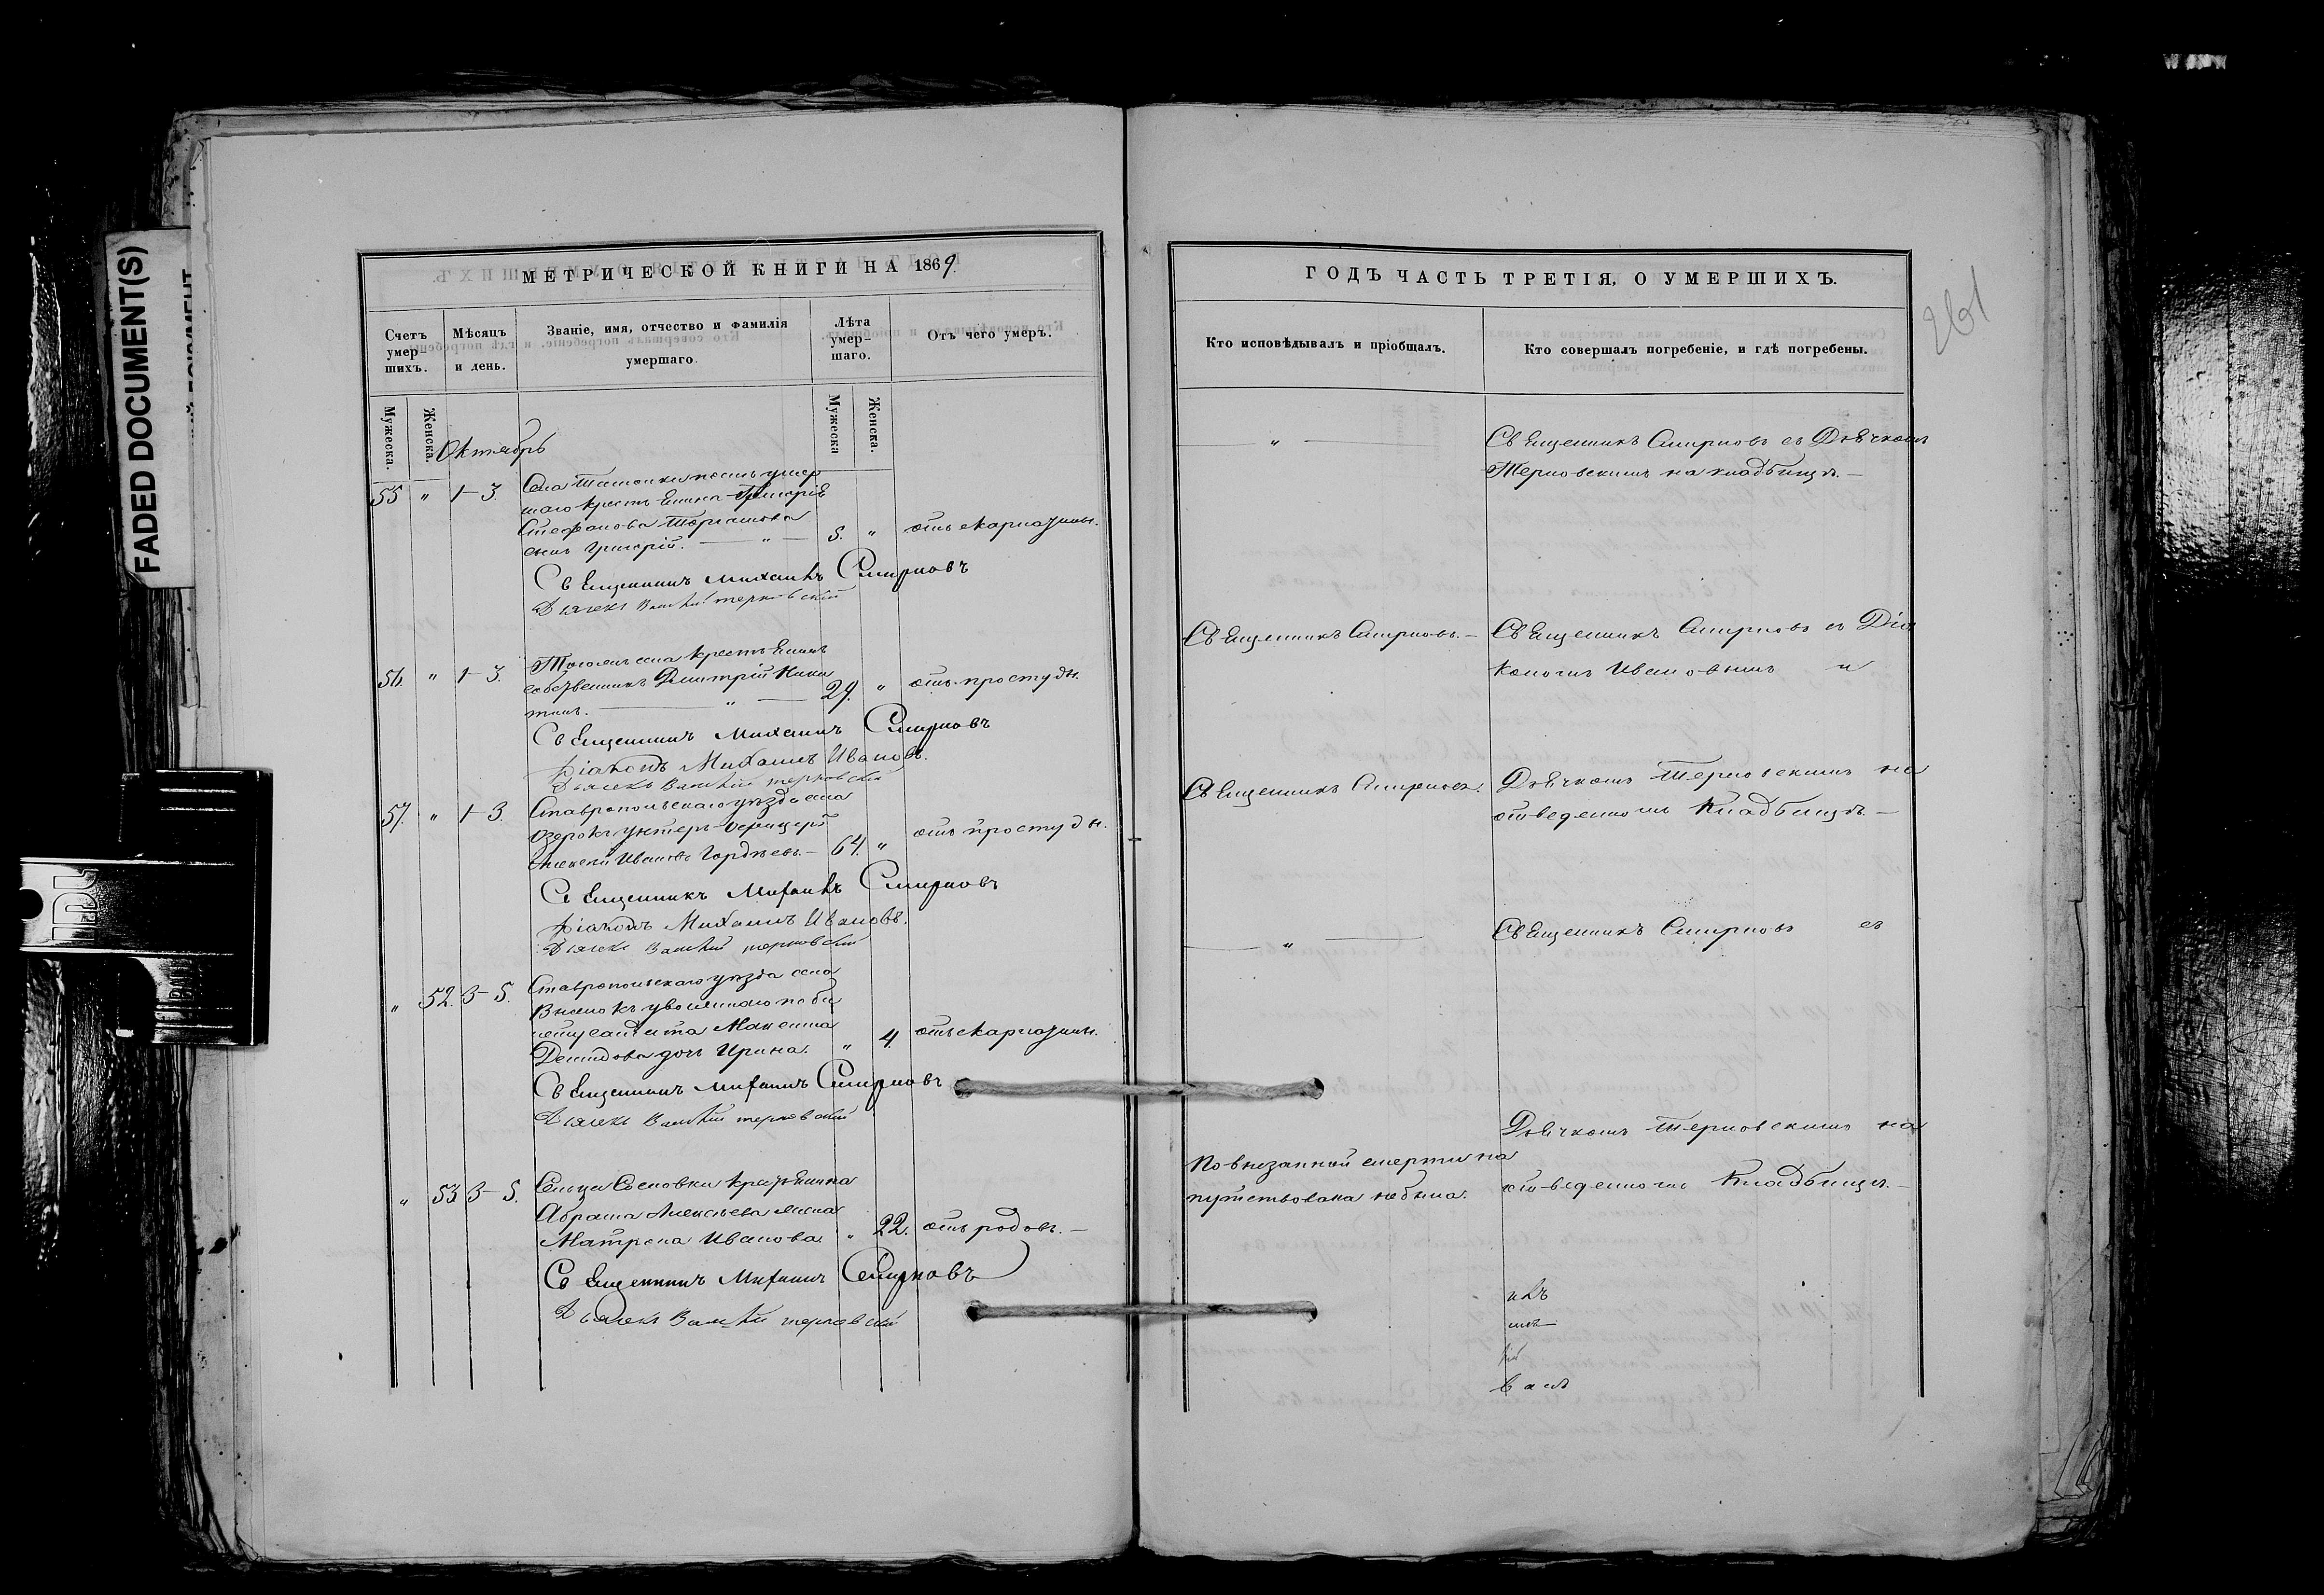 FADED DOCUMENT(S)
МЕТРИЧЕСКОЙ КНИГИ НА 1869.
Счетъ умер-шихъ.
Мѣсяцъ и день.
Званіе, имя, отчество и фамилія умершаго.
Лѣта умер-шаго.
Отъ чего умеръ.
Мужеска.
Женска.
Мужеска
Женска.
Октябрь
55 " 1-3.
Села
Стефанова
сынъ Григорій. — " — 5. "
Священникъ Михаилъ Смирновъ
Дьячекъ Василий терновский
56. " 1-3. Тогожъ села крестьянинъ
собственникъ Дмитрій Ники
тинъ. — " — 29. " отъ простуды.
Священникъ Михаилъ Смирновъ
Діаконъ Михаилъ Ивановъ.
Дьячекъ Василий терновский
57. " 1-3. Ставропольскаго уѣзда села
Озерокъ унтеръ-офицеръ
Алексей Ивановъ Гордѣевъ. — 64. " отъ простуды.
Священникъ Михаилъ Смирновъ
Діаконъ Михаилъ Ивановъ.
Дьячекъ Василий терновский
" 52. 3-5. Ставропольскаго уѣзда села
уволеннаго по би
лету солдата
Демидова дочь Ирина. " 4.
Священникъ Михаилъ Смирновъ
Дьячекъ Василий терновский
" 53 3-5. Сельца Сосновки крестьянина
Абрама Алексѣева жена
Матрона Иванова. " 22. отъ родовъ. —
Священникъ Михаилъ Смирновъ
Дьячекъ Василий терновский
ГОДЪ ЧАСТЬ ТРЕТІЯ, О УМЕРШИХЪ.
261
Кто исповѣдывалъ и пріобщалъ.
Кто совершалъ погребеніе, и гдѣ погребены.
— " — Священникъ Смирновъ съ Дьячкомъ
Терновскимъ на кладбищѣ. —
Священникъ Смирновъ. — Священникъ Смирновъ съ Діа
кономъ Ивановымъ и
Священникъ Смирновъ. Дьячкомъ Терновскимъ на
отведенномъ Кладбищѣ. —
— " — Священникъ Смирновъ съ
Дьячкомъ Терновскимъ на
По внезапной смерти на
путствована небыла. отведенномъ Кладбищѣ. —